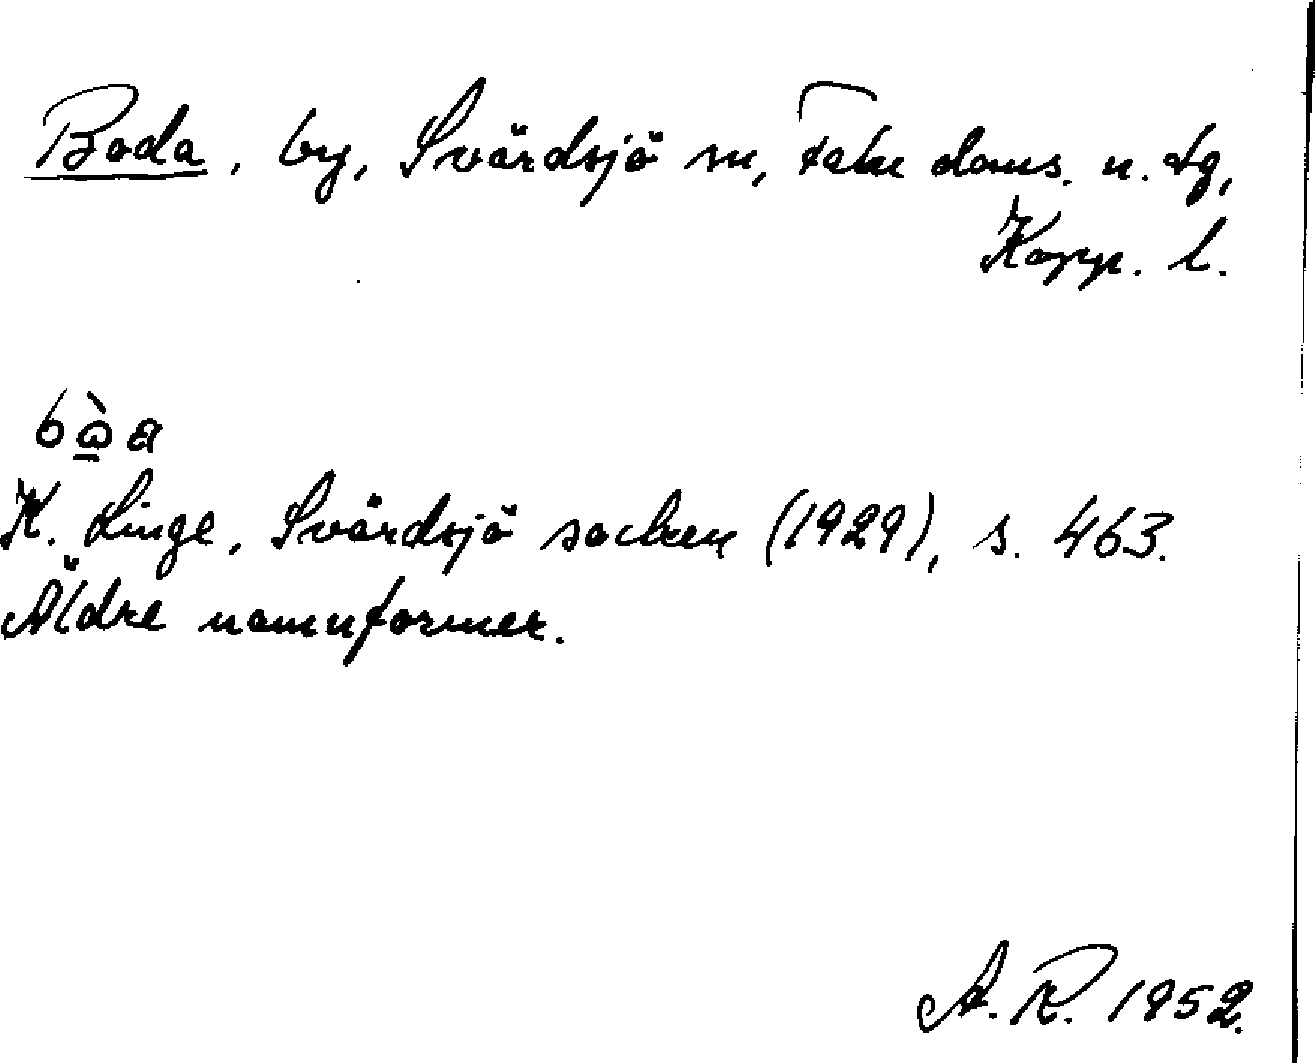 Boda, by, Svärdsjö sn, Falu doms. n. tg,
Kopp. l.
bò̱a
K. Linge, Svärdsjö socken (1929), s. 463.
Äldre namnformer.
A. R. 1952.